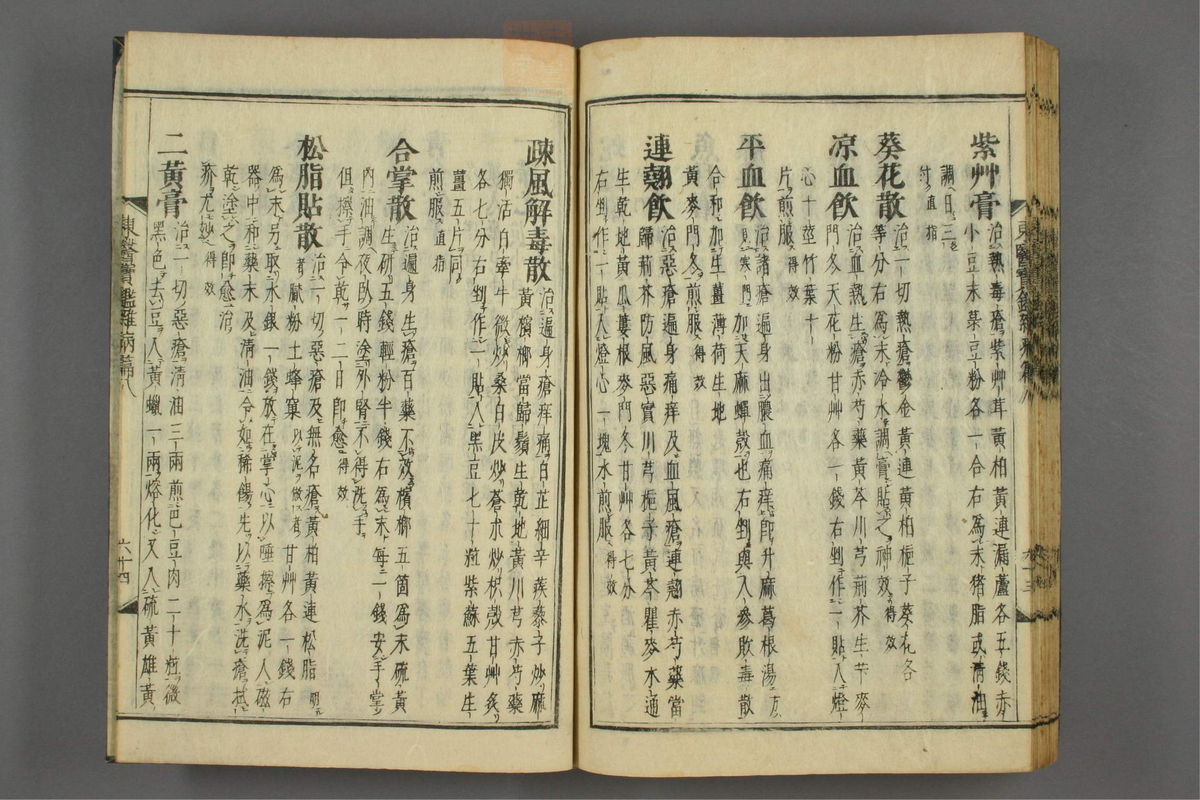 紫艸膏治熱毒瘡紫艸茸黄柏黄連漏蘆各五錢赤
小豆末菉豆粉各一合右為末猪脂或清油
調日三
付直指
葵花散治一切熱瘡鬱金黄連黄柏梔子葵花各
等分右為末冷水調膏貼之神效得效
凉血飮治血熱生瘡赤芍藥黄芩川芎荊芥生芐麥
門冬天花粉甘艸各一錢右剉作一貼入燈
心十莖竹葉十
片煎服得效
平血飮治諸瘡遍身出膿血痛痒即升麻葛根湯方
見寒門加天麻蟬殼也右剉與人參敗毒散
合和加生薑薄荷生地
黄麥門冬煎服得效
連翹飮治惡瘡遍身痛痒及血風瘡連翹赤芍藥當
歸荊芥防風惡實川芎梔子黄芩瞿麥木通
生乾地黄瓜蔞根麥門冬甘艸各七分
右剉作一貼入燈心一塊水煎服得效
疎風解毒散治遍身瘡痒痛白芷細辛蒺藜子炒麻
黄檳榔當歸鬚生乾地黄川芎赤芍藥
獨活白牽牛微炒桑白皮炒蒼朮炒枳殼甘艸炙
各七分右剉作一貼入黒豆七十粒紫蘇五葉生
薑五片同
煎服直指
合掌散治遍身生瘡百藥不效檳榔五箇為末硫黄
生研五錢輕粉半錢右為末每一錢安手掌
内油調夜臥時塗外腎不得洗手
但擦手令乾一二日即愈得效
松脂貼散治一切惡瘡及無名瘡黄柏黄連松脂明
者膩粉土蜂窠以泥做者甘艸各一錢右
為末另取水銀一錢放在掌心以唾擦為泥入磁
器中和藥末及清油令如稀餳先以藥水洗瘡拭
乾塗之即愈治
疥尤妙得效
二黄膏治一切惡瘡清油三兩煎巴豆肉二十粒微
黒色去豆入黄蠟一兩熔化又入硫黄雄黄
東醫寶鑑雜病篇八
六十四